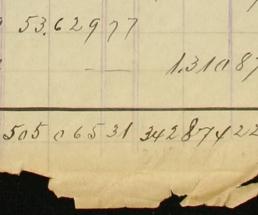 53.62977
— — 1.31087
505 06531 34287422